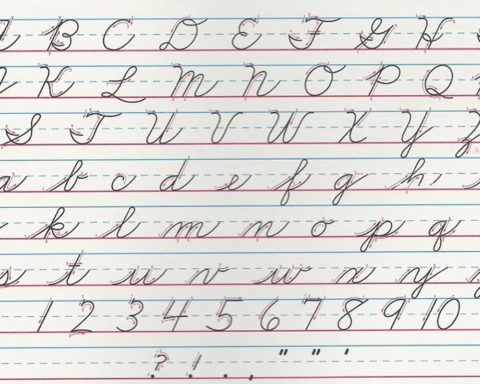 B C D E F G H
K L M N O P Q
S T U V W X Y Z
a b c d e f g h
k l m n o p q
s t u v w x y
1 2 3 4 5 6 7 8 9 10
? ! . , " " '